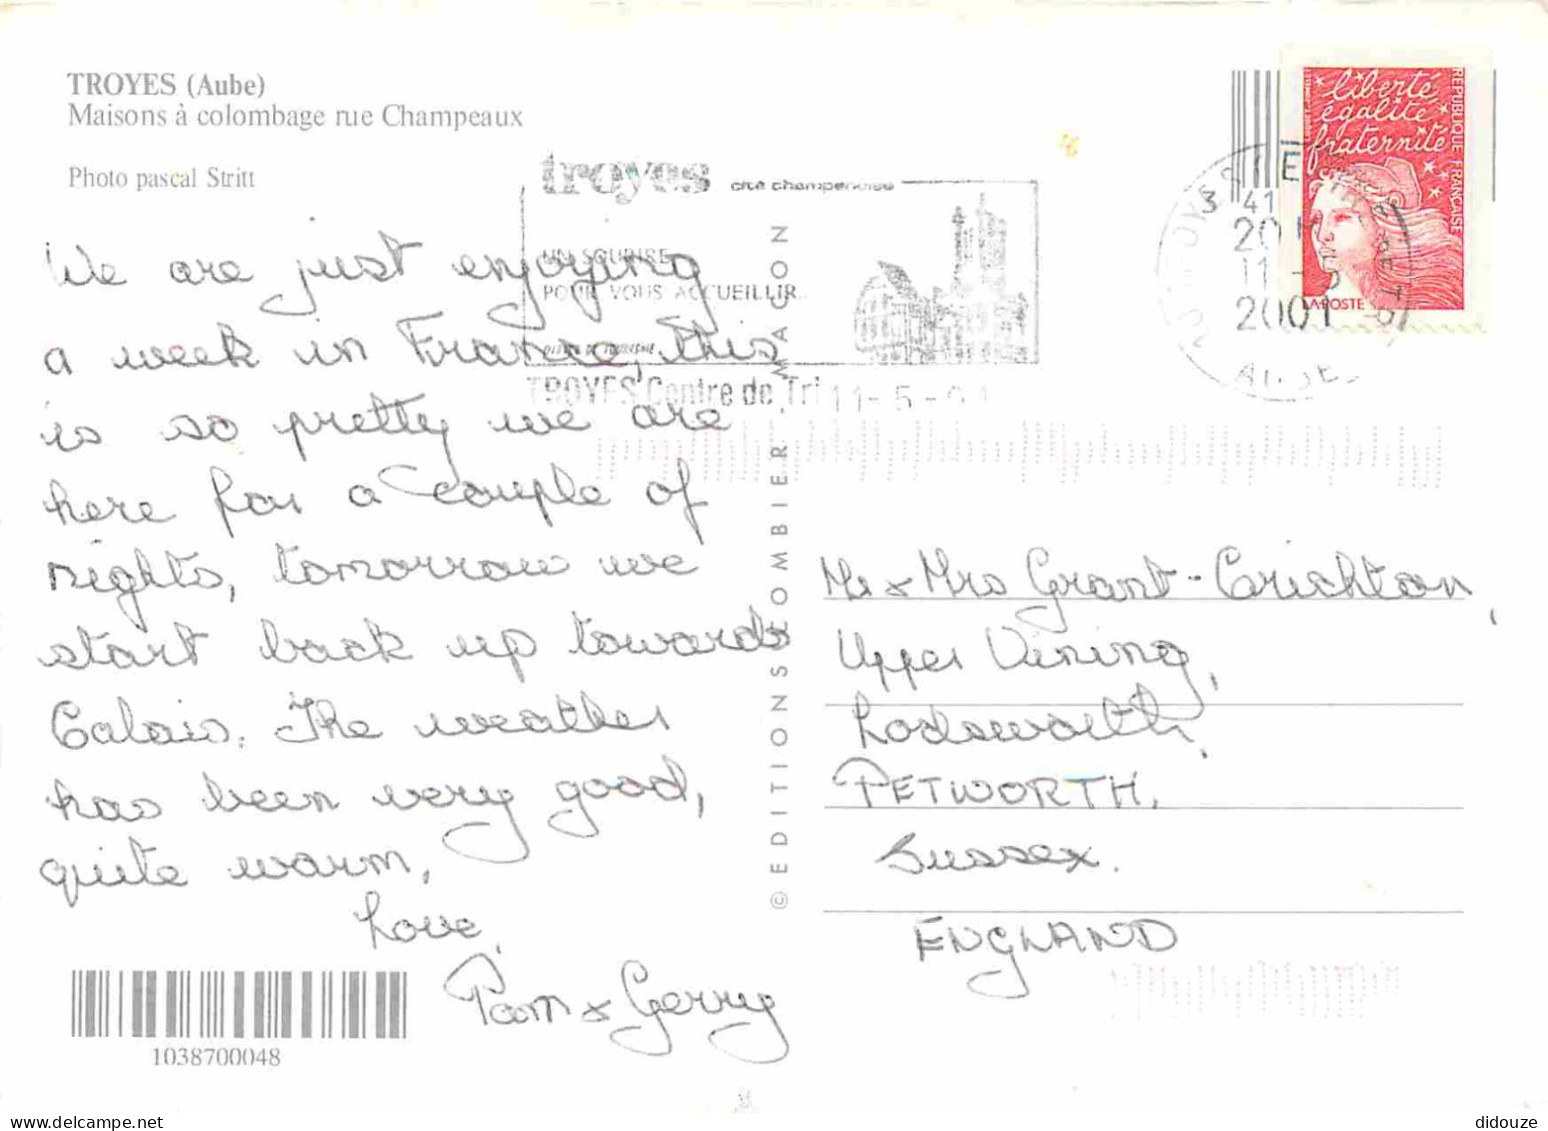 TROYES (Aube)
Maisons à colombage rue Champeaux
Photo pascal Stritt
troyes cité champenoise
UN SOURIRE
POUR VOUS ACCUEILLIR
TROYES Centre de Tri 11-5-01
liberté
égalité
fraternité
REPUBLIQUE FRANÇAISE
LA POSTE
11-5
2001
AUBE
We are just enjoying
a week in France, this
is so pretty we are
here for a couple of
nights, tomorrow we
start back up towards
Calais. The weather
has been very good,
quite warm,
Love,
Pam & Gerry
© EDITIONS COMBIER MACON
Mr & Mrs Grant-Crichton,
Upper Vining,
Lodsworth,
PETWORTH,
Sussex.
ENGLAND
1038700048
didouze